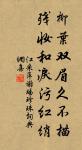 柳葉雙眉久不描
殘妝和淚污紅綃
江采蘋謝賜珍珠詞典
網